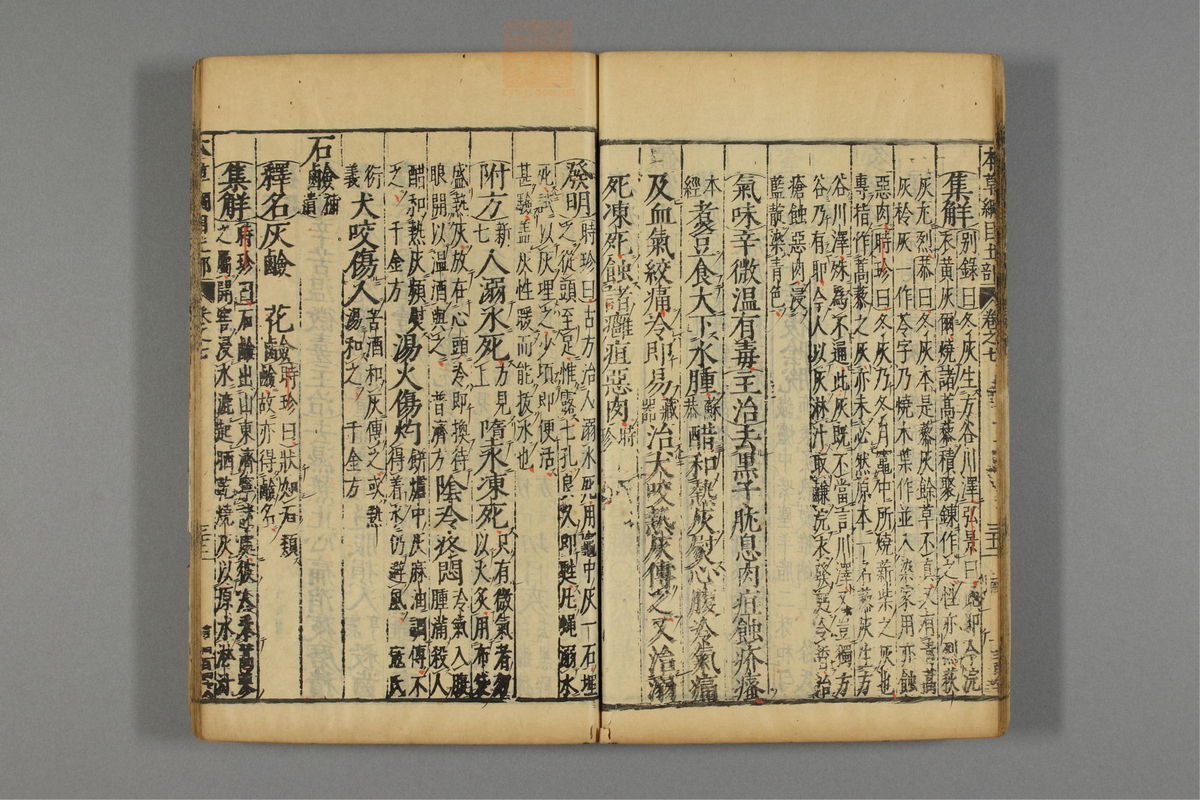 本草綱目土部 卷之七
集解 别錄曰冬灰生方谷川澤弘景曰此卽今浣
衣黄灰爾燒諸蒿藜積聚鍊作之性亦烈荻
灰尤烈恭曰冬灰本是藜灰餘草不真又有青蒿
灰柃灰一作苓字乃燒木葉作並入染家用亦蝕
惡肉時珍曰冬灰乃冬月竈中所燒薪柴之灰也
專指作蒿藜之灰亦未必然原本一名藜灰生方
谷川澤殊爲不通此灰旣不當言川澤又豈獨方
谷乃有卽今人以灰淋汁取鹻浣衣發麪令皙治
瘡蝕惡肉浸
藍靛染青色
氣味辛微溫有毒主治去黑子肬息肉疽蝕疥瘙
本經 煑豆食大下水腫蘇恭 醋和熱灰熨心腹冷氣痛
及血氣絞痛冷卽易藏器 治犬咬熱灰傅之又治溺
死凍死蝕諸癰疽惡肉時珍
發明 時珍曰古方治人溺水死用竈中灰一石埋
之從頭至足惟露七孔良久卽甦凡蠅溺水
死試以灰埋之少頃卽便活
甚驗盖灰性暖而能拔水也
附方 新七 人溺水死方見上 墮水凍死只有微氣者勿
以火炙用布袋
盛熱灰放在心頭冷卽換待
眼開以温酒與之普濟方 陰冷疼悶冷氣入腹
腫滿殺人
醋和熱灰頻熨
之千金方 湯火傷灼餅爐中灰麻油調傅不
得着水仍避風寇氏
衍義 犬咬傷人苦酒和灰傅之或熱
湯和之千金方
石鹼補遺
釋名灰鹼 花鹼時珍曰狀如石類
鹼故亦得鹼名
集解 時珍曰石鹼出山東濟寧諸處彼人采蒿蓼
之屬開窖浸水漉起晒乾燒灰以原水淋汁